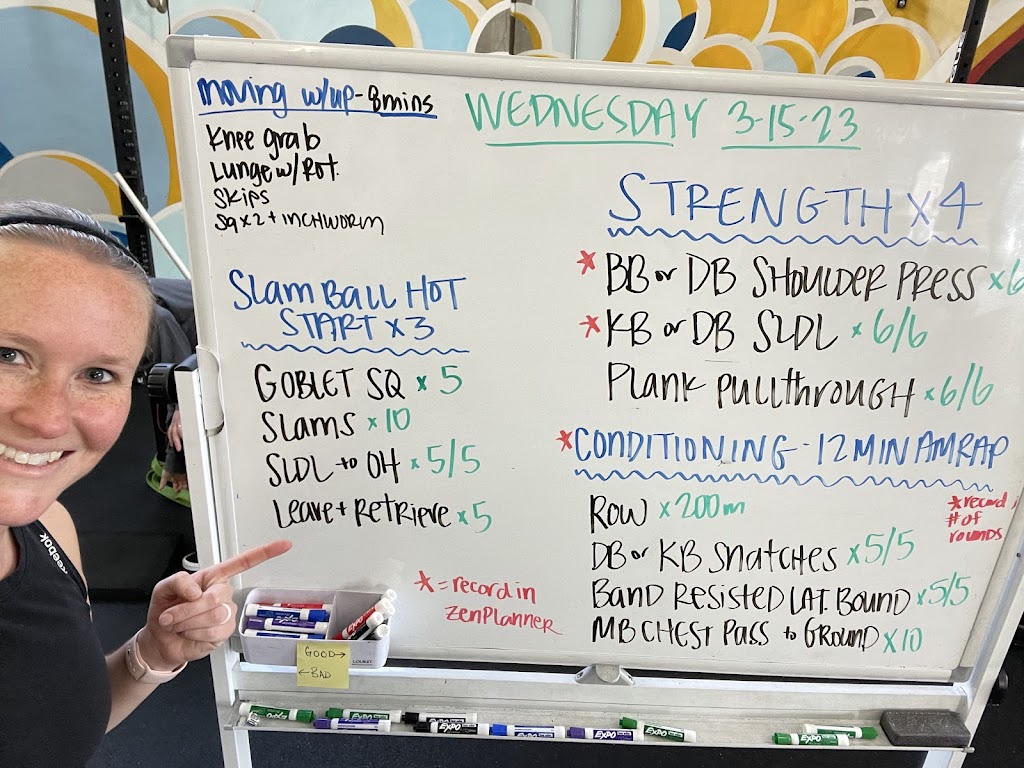 WEDNESDAY 3-15-23
moving w/up - 8mins
Knee grab
Lunge w/ Rot.
Skips
Sq x2 + INCHWORM
Slam Ball HOT
START x3
GOBLET SQ x 5
Slams x 10
SLDL to OH x 5/5
Leave + Retrieve x 5
STRENGTH x 4
* BB or DB SHOULDER PRESS x 6
* KB or DB SLDL x 6/6
Plank PULLTHROUGH x 6/6
*CONDITIONING - 12 MIN AMRAP
*record
# of
rounds
ROW x 200m
DB or KB Snatches x 5/5
Band Resisted LAT. Bound x 5/5
MB CHEST PASS to GROUND x 10
* = record in
zenplanner
GOOD→
←BAD
Reebok
EXPO
EXPO
EXPO
EXPO
EXPO
EXPO
EXPO